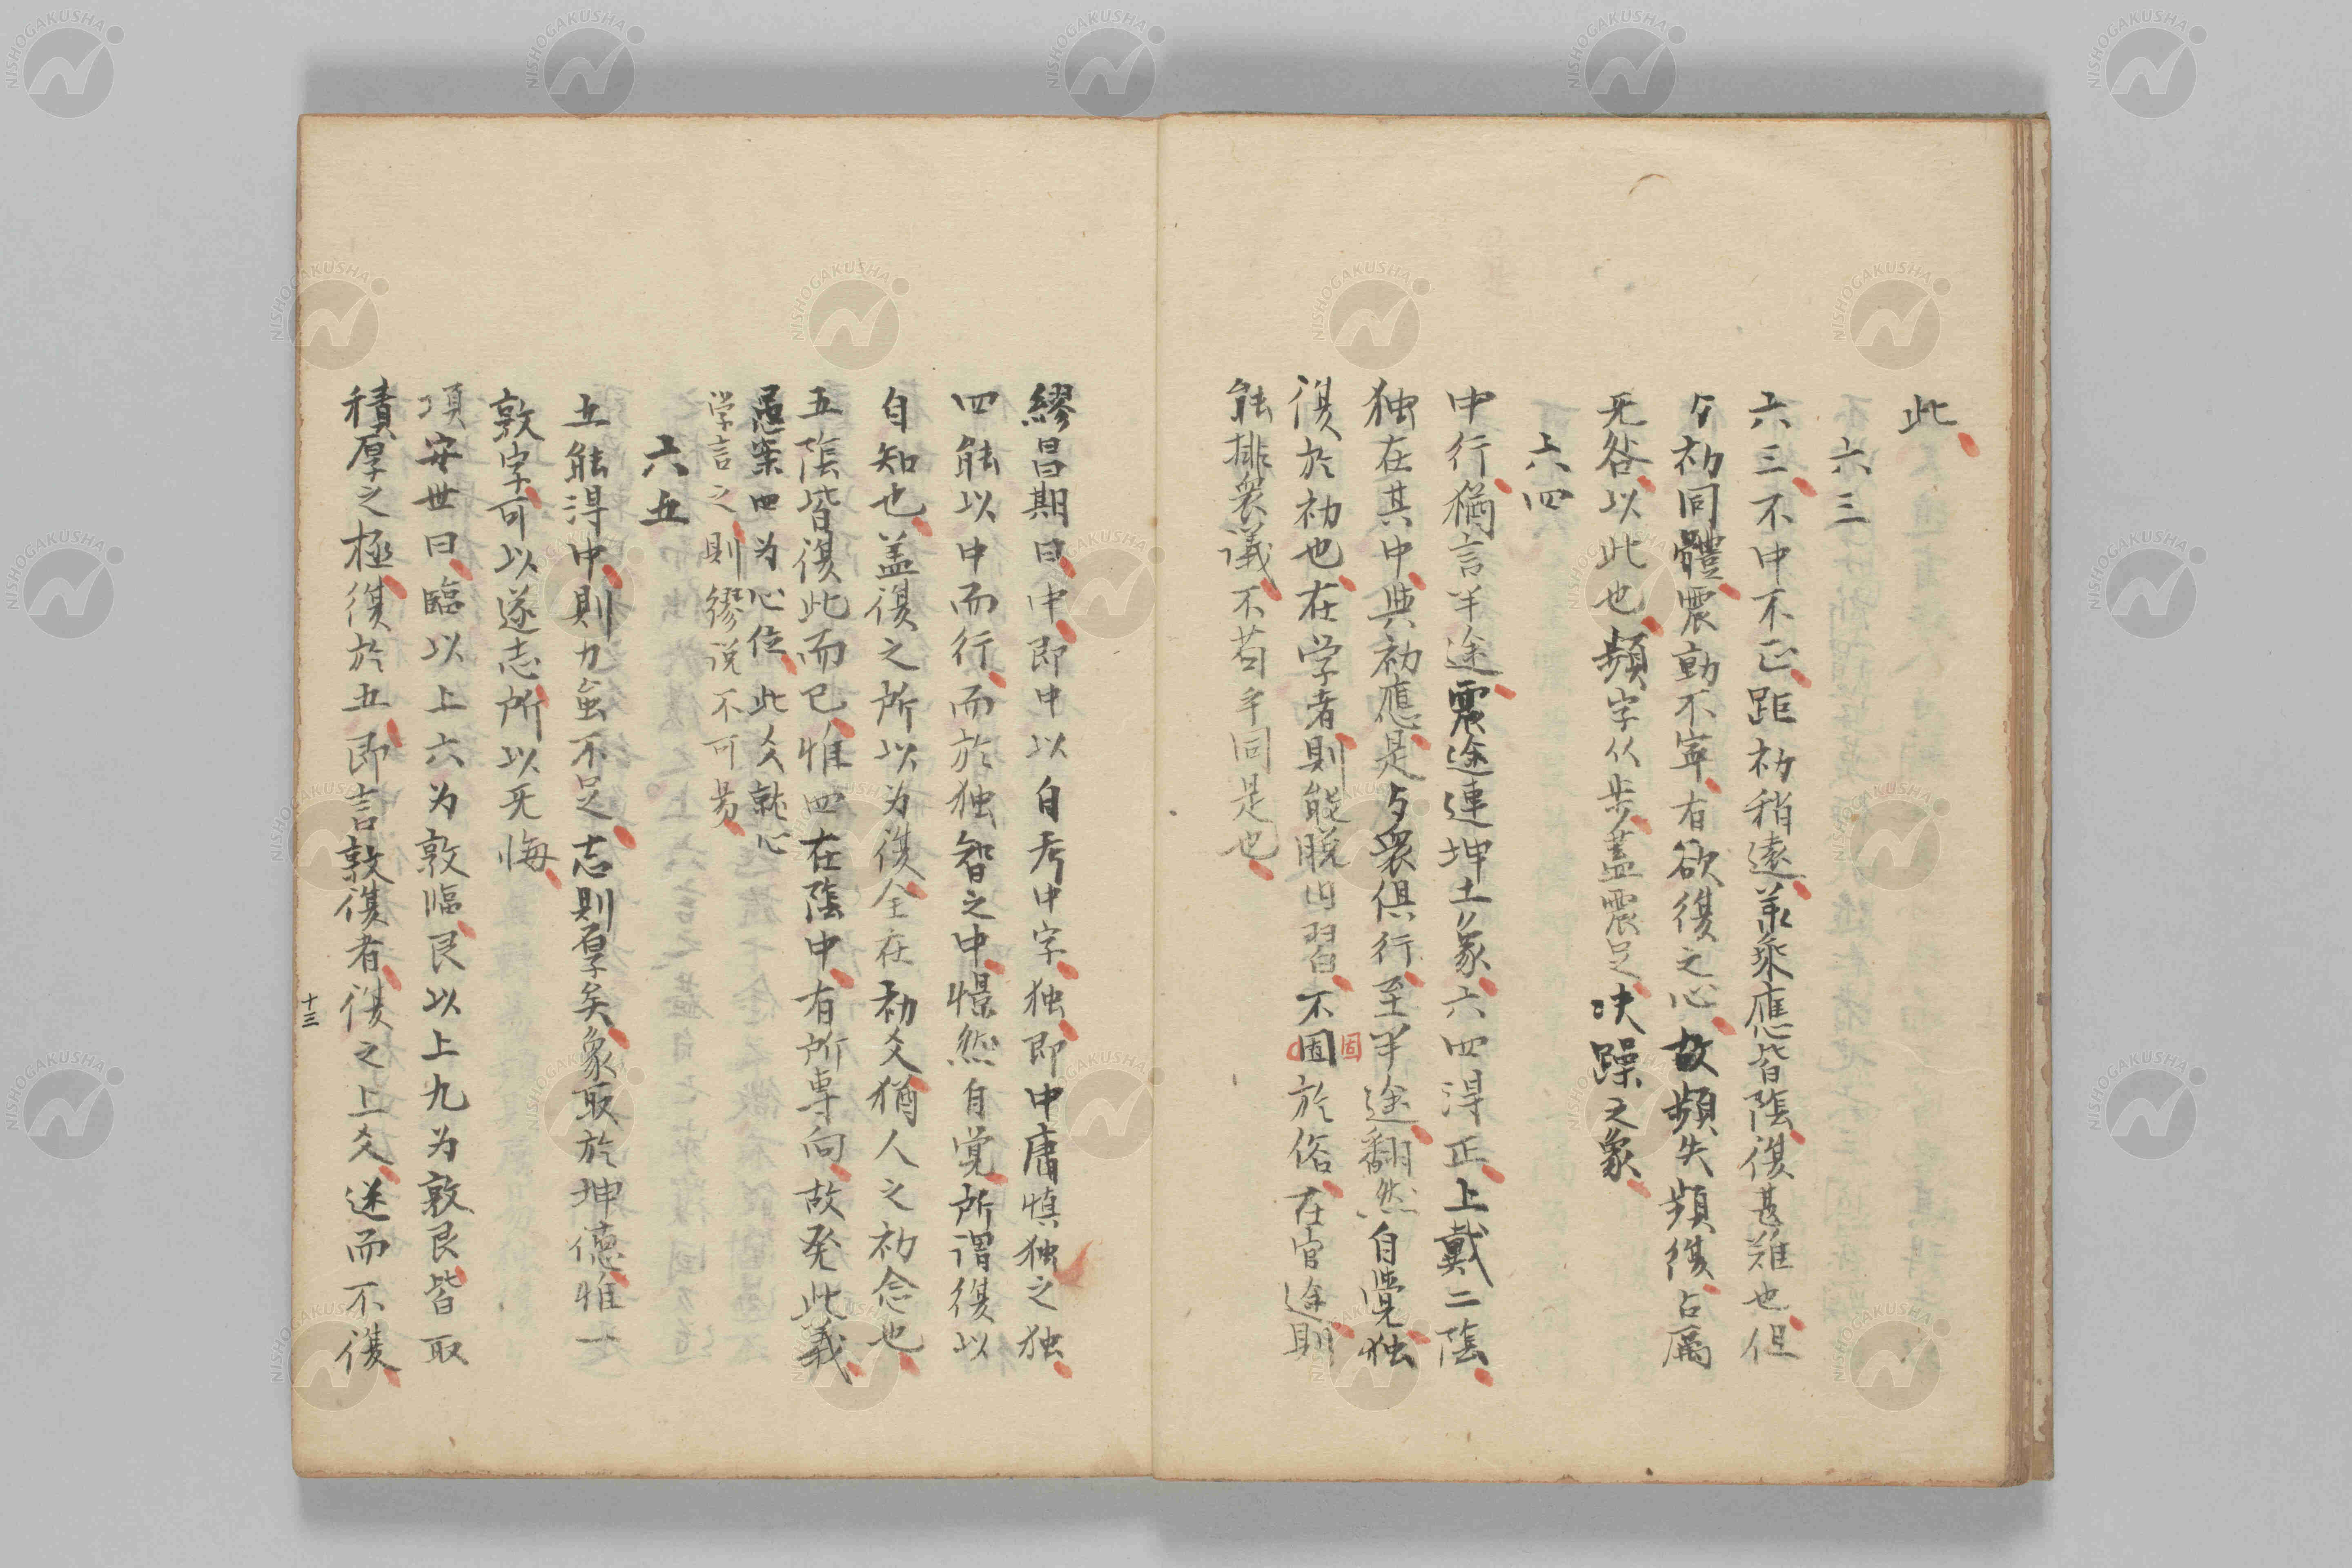 此
六三
六三不中不正距初稍遠羕乘應皆陰復甚難也但
与初同體震動不寧有欲復之心故頻失頻復占厲
无咎以此也頻字从步蓋震足决躁之象
六四
中行猶言半途震途連坤土象六四得正上戴二陰
独在其中與初應是与衆俱行至半途翻然自覺独
復於初也在学者則能脱旧習不固於俗在官途則
固
能排衆議不苟乎同是也
繆昌期曰中即中以自考中字独即中庸慎独之独
四能以中而行而於独智之中憬然自覚所謂復以
自知也盖復之所以为復全在初爻猶人之初念也
五陰皆復此而已惟四在陰中有所専向故発此義
愚案四为心位此爻就心
学言之則繆说不可易
六五
五能得中則力虽不足志則厚矣象取於坤德惟一
敦字可以遂志所以无悔
項安世曰臨以上六为敦臨艮以上九为敦艮皆取
積厚之極復於五即言敦復者復之上爻迷而不復
十三
NISHOGAKUSHA